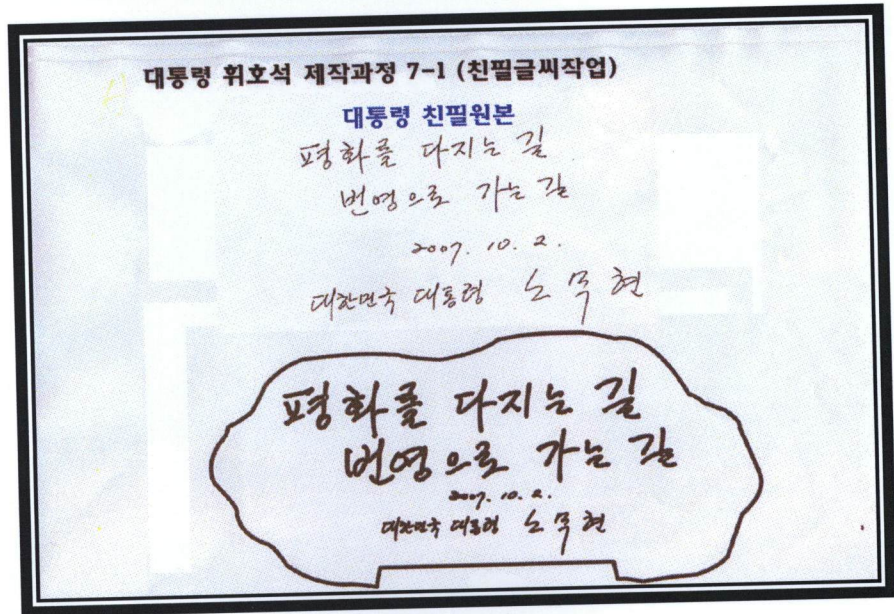 대통령 휘호석 제작과정 7-1 (친필글씨작업)
대통령 친필원본
평화를 다지는 길
번영으로 가는 길
2007. 10. 2.
대한민국 대통령 노무현
평화를 다지는 길
번영으로 가는 길
2007. 10. 2.
대한민국 대통령 노무현